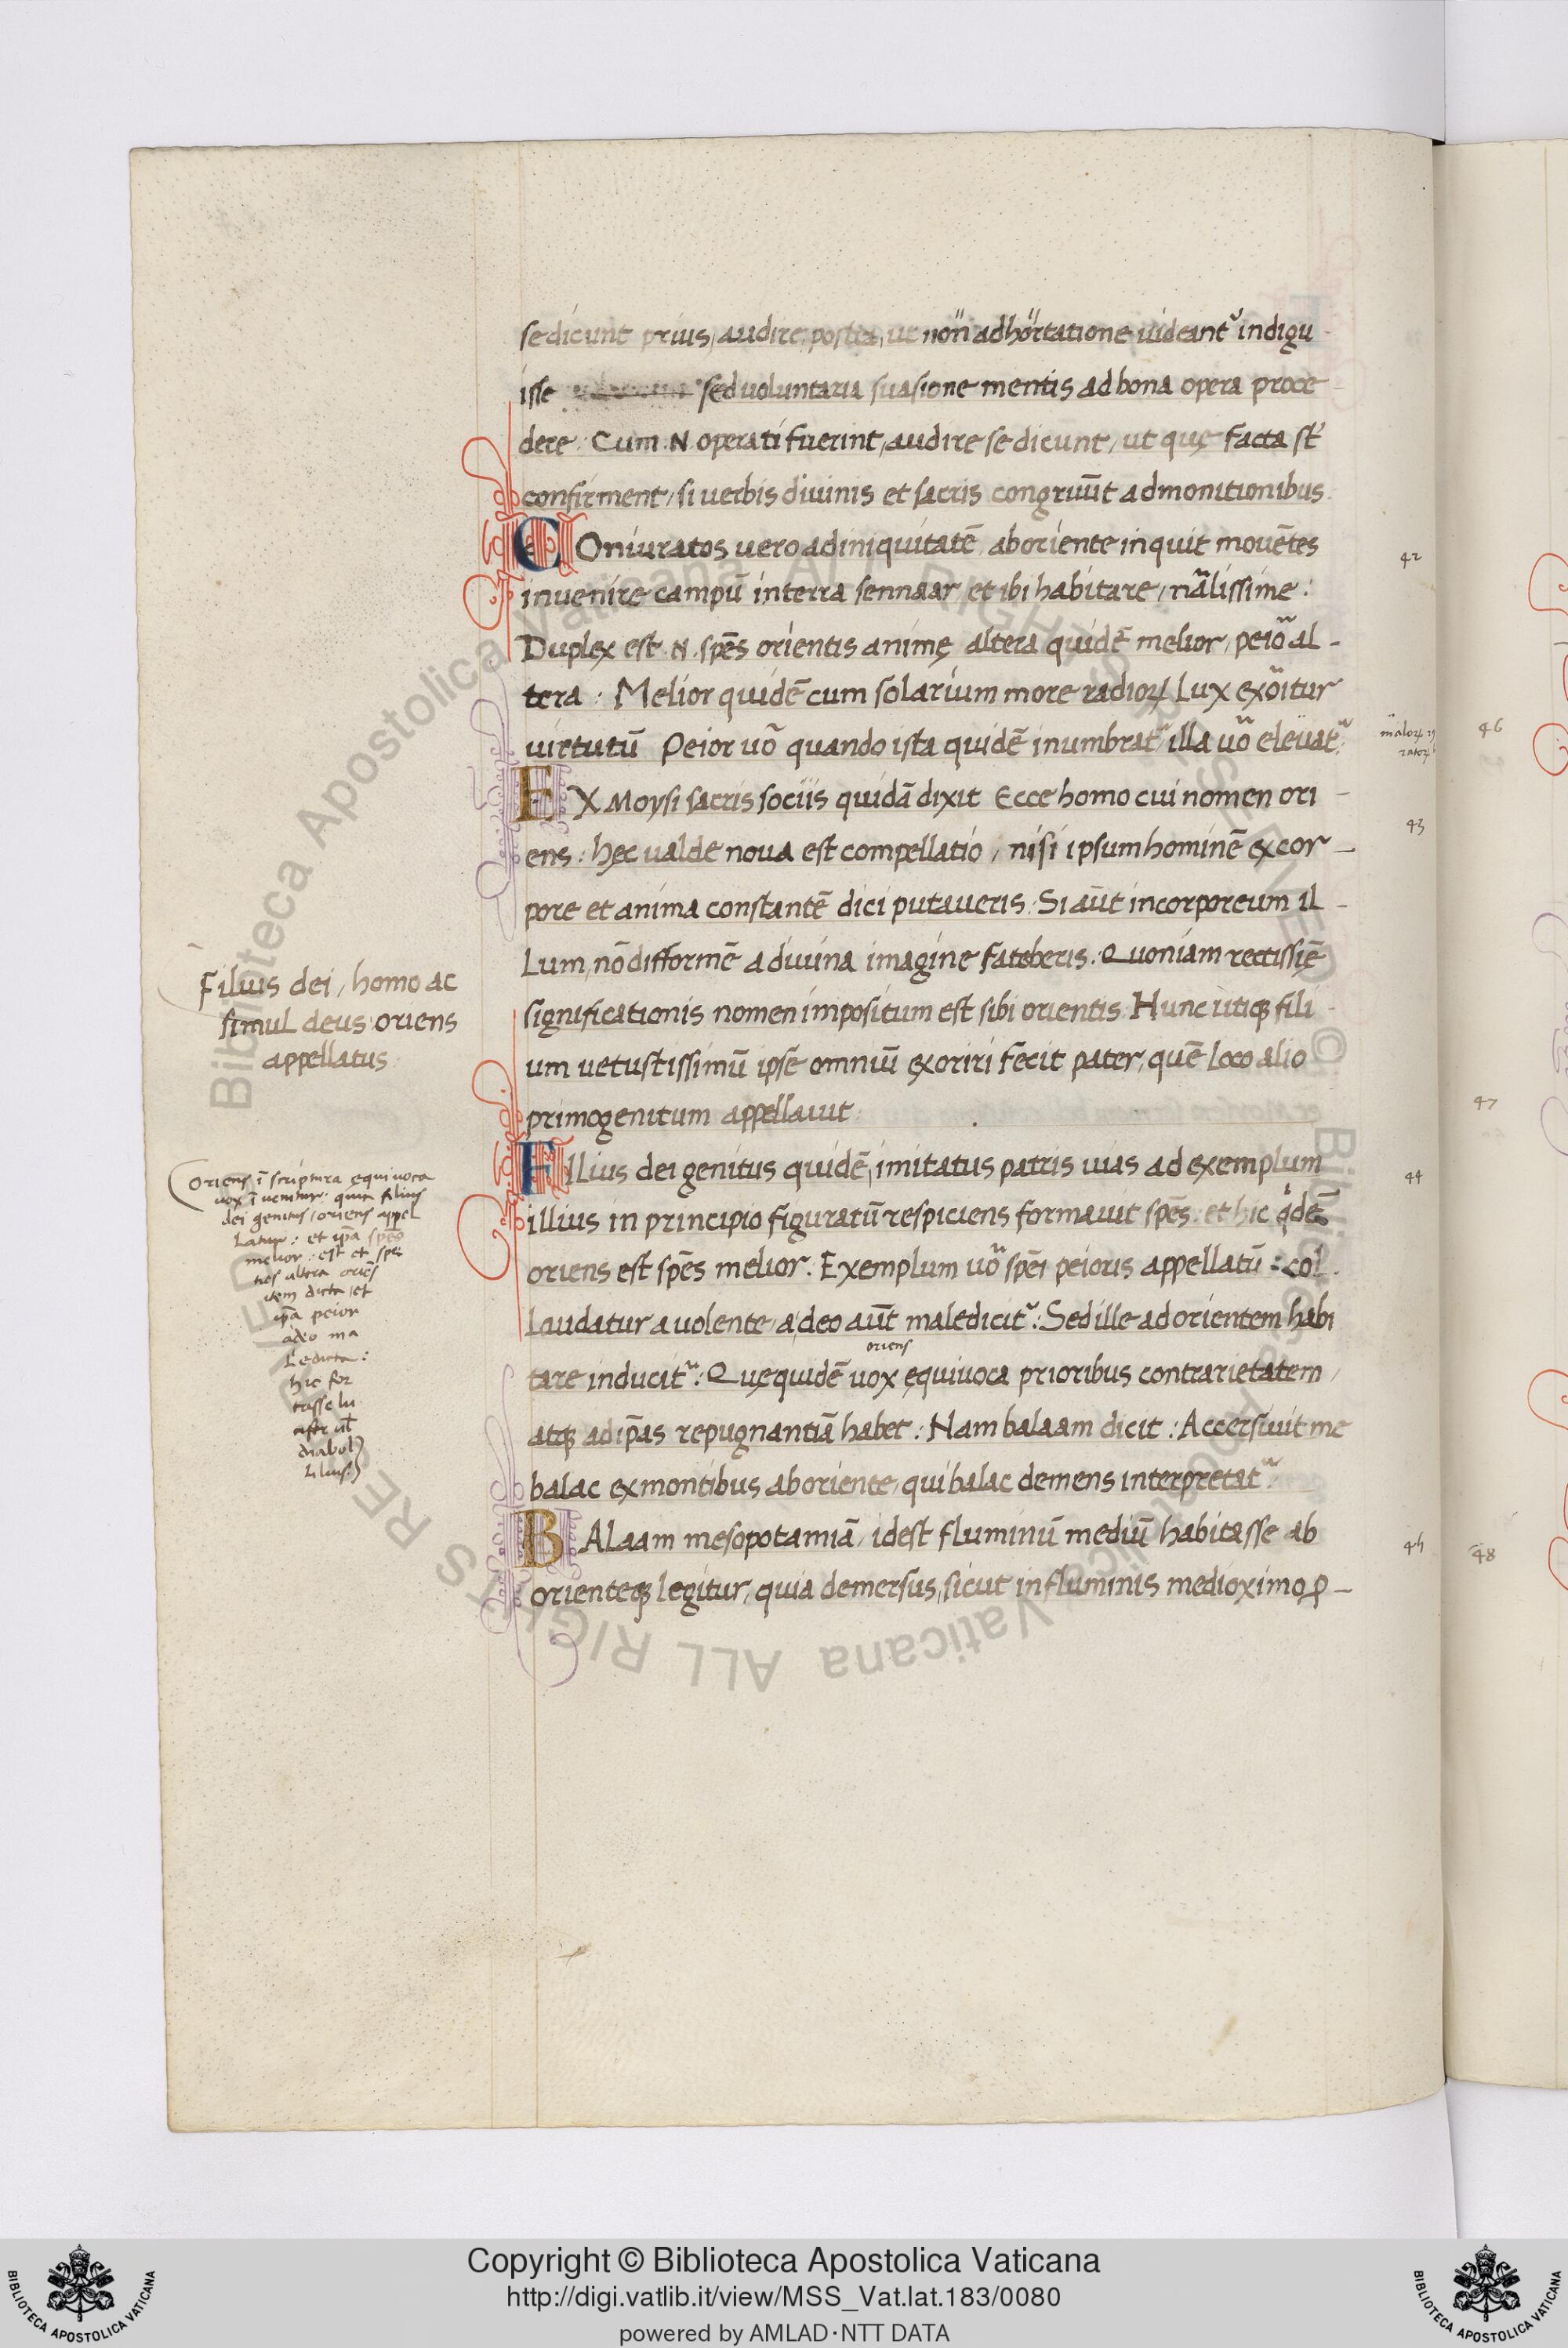 se dicunt prius, audire postea, ut non adhortatione uideant᷑ indigu
isse sed uoluntaria suasione mentis ad bona opera proce
dere. Cum .N. operati fuerint, audire se dicunt, ut quę facta st̄
confirment, si uerbis diuinis et sacris congruūt admonitionibus.
COniuratos uero ad iniquitatē ab oriente inquit mouētes
inuenire campū in terra sennaar et ibi habitare, nãlissime:
Duplex est .N. spēs orientis animę altera quidē melior, peiõ al-
tera: Melior quidē cum solarium more radioꝝ lux exõitur
uirtutū Peior uõ quando ista quidē inumbrat᷑, illa uõ eleuat᷑.
EX Moysi sacris sociis quidā dixit Ecce homo cui nomen ori-
ens: hęc ualde noua est compellatio, nisi ipsum hominē ex cor-
pore et anima constantē dici putaueris. Si aūt incorporeum il-
lum, nō difformē a diuina imagine fateberis. Quoniam rectissiē
significationis nomen impositum est sibi orientis. Hunc utiqꝫ fili-
um uetustissimū ipse omniū exoriri fecit pater, quē loco alio
primogenitum appellauit.
FIlius dei genitus quidē, imitatus patris uias ad exemplum
illius in principio figuratū respiciens formauit spēs. et hic qdē
oriens est spēs melior. Exemplum uõ spēi peioris appellatū: col
laudatur a uolente, a deo aūt maledicit᷑: Sed ille ad orientem habi
oriens
tare inducit᷑: Quę quidē uox ęquiuoca prioribus contrarietatem,
atqꝫ ad ip̄as repugnantiā habet: Nam balaam dicit: Accersiuit me
balac ex montibus ab oriente, qui balac demens interpretat᷑.
BALaam mesopotamiā, idest fluminū mediū habitasse ab
orienteqꝫ legitur, quia demersus, sicut in fluminis medioximo ꝓ-
Filius dei, homo ac
simul deus oriens
appellatus
oriens ī scriptura equiuoca
uox īuenitur: quia filius
dei genitus, oriens appel
latur: et ip̄a spēs
melior: est et spē
altera oriēs
item dicta, et
ip̄a peior
a deo ma
ledicta:
hic for
tasse lu
diabol
42
43
44
45
46
47
48
Copyright © Biblioteca Apostolica Vaticana
http://digi.vatlib.it/view/MSS_Vat.lat.183/0080
powered by AMLAD·NTT DATA
BIBLIOTECA APOSTOLICA VATICANA
BIBLIOTECA APOSTOLICA VATICANA
Biblioteca Apostolica Vaticana ALL RIGHTS RESERVED © Biblioteca Apostolica Vaticana ALL RIGHTS RESERVED ©